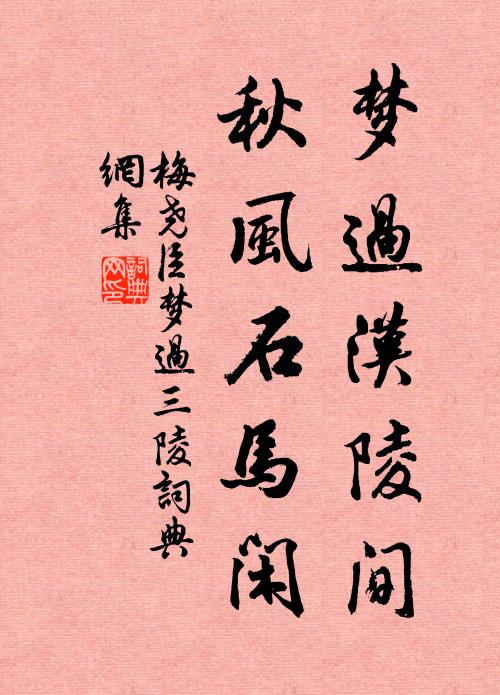 梦過漢陵間
秋風石馬閑
梅尧臣梦過三陵詞典
網集
詞典
网印